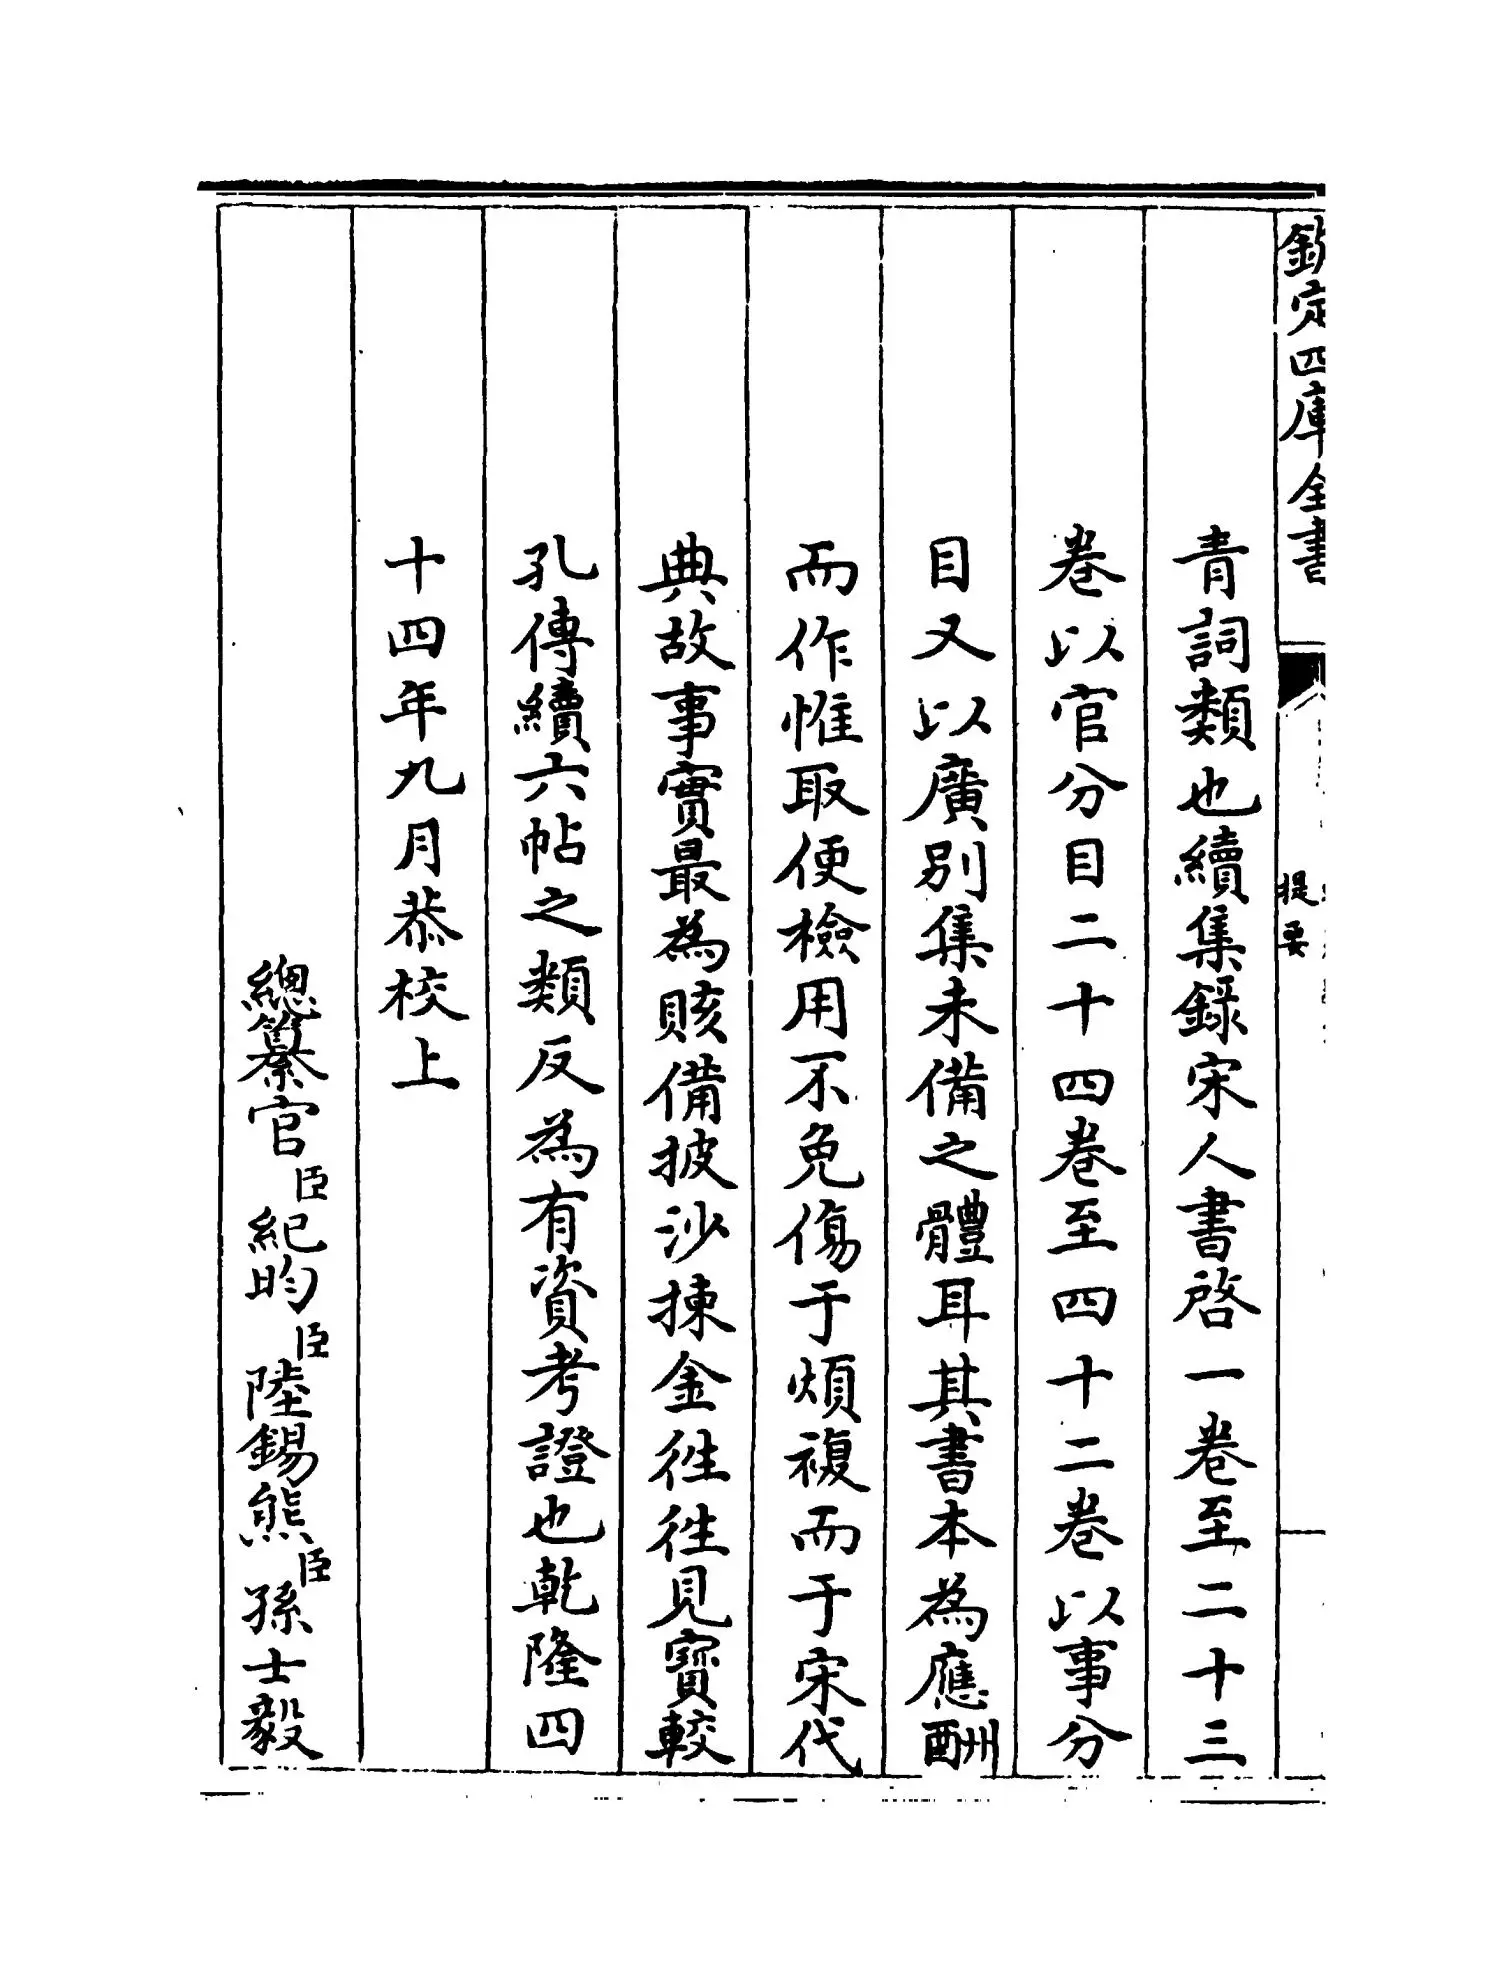 欽定四庫全書
提要
青詞類也續集録宋人書啓一卷至二十三
卷以官分目二十四卷至四十二卷以事分
目又以廣别集未備之體耳其書本為應酬
而作惟取便檢用不免傷于煩複而于宋代
典故事實最為賅備披沙揀金徃徃見寳較
孔傳續六帖之類反為有資考證也乾隆四
十四年九月恭校上
總纂官臣紀昀臣陸錫熊臣孫士毅